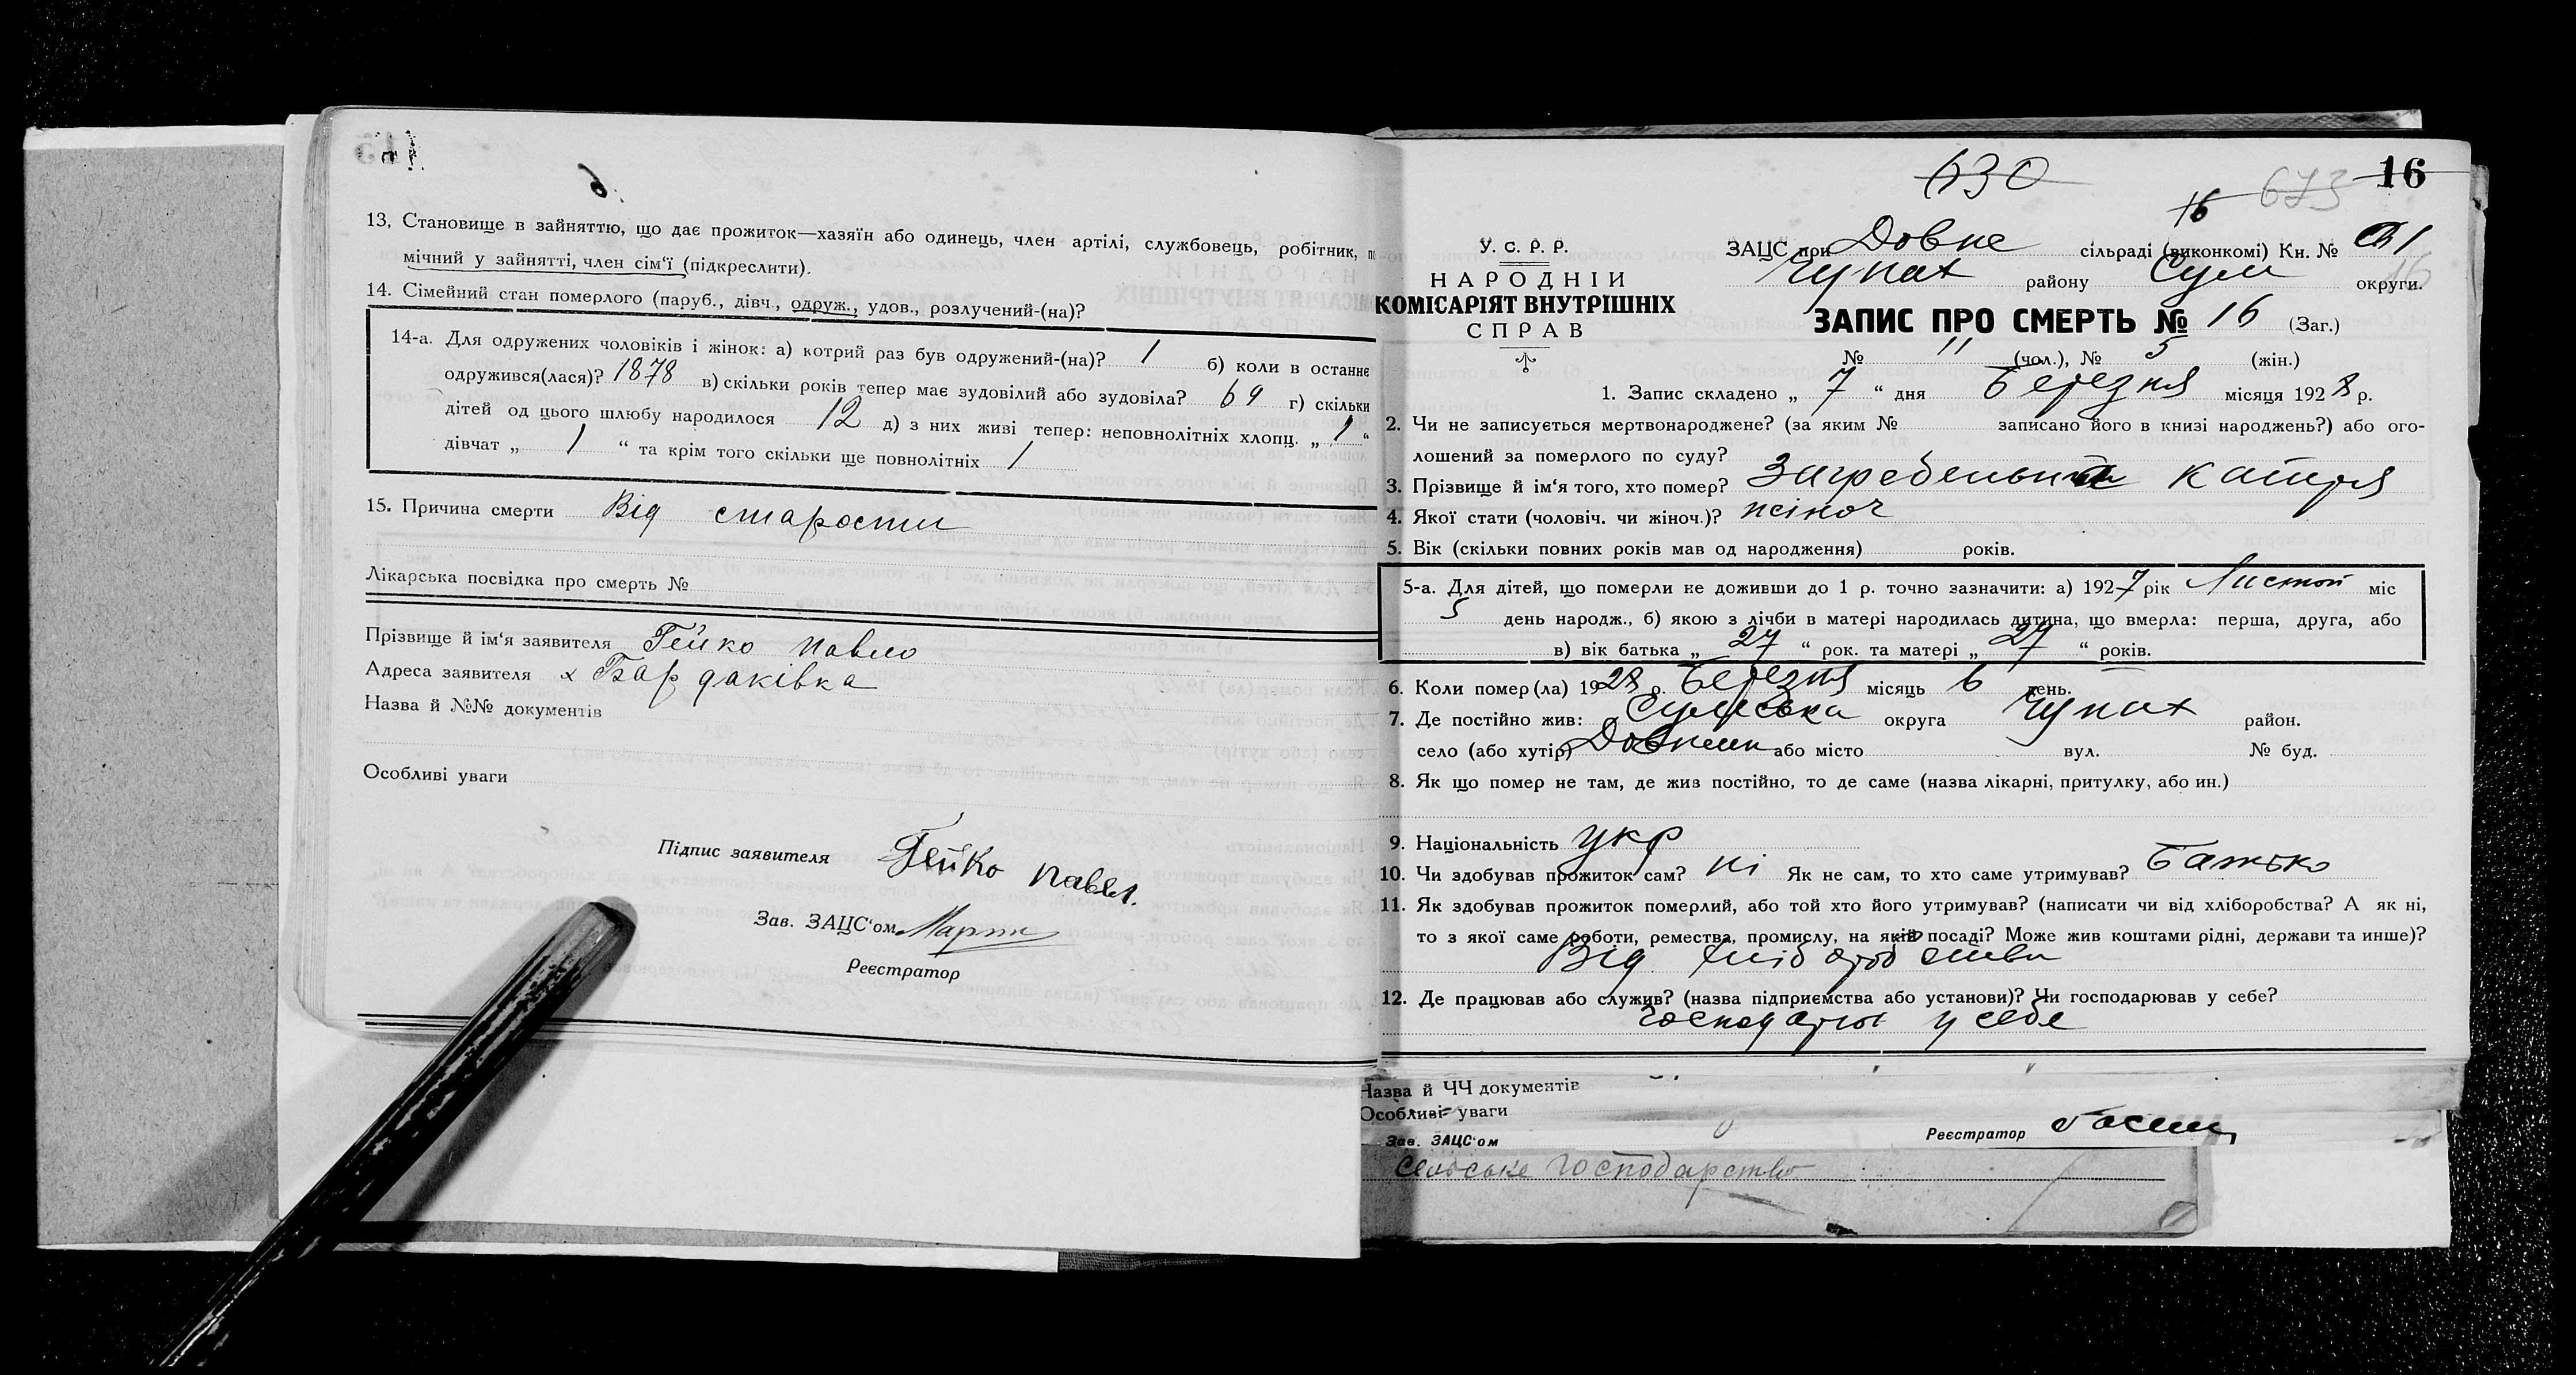 13. Становище в зайняттю, що дає прожиток—хазяїн або одинець, член артілі, службовець, робітник,
мічний у зайнятті, член сім'ї (підкреслити).
14. Сімейний стан померлого (паруб., дівч., одруж., удов., розлучений-(на)?
14-а. Для одружених чоловіків і жінок: а) котрий раз був одружений-(на)? 1 б) коли в останнє
одружився(лася)? 1878 в) скільки років тепер має зудовілий або зудовіла? 69 г) скільки
дітей од цього шлюбу народилося 12 д) з них живі тепер: неповнолітніх хлопц. „ 1 “
дівчат „ 1 “ та крім того скільки ще повнолітніх 1
15. Причина смерти Від старости
Лікарська посвідка про смерть №
Прізвище й ім'я заявителя Гейко Павло
Адреса заявителя х Бардаківка
Назва й №№ документів
Особливі уваги
Підпис заявителя Гейко Павел.
Зав. ЗАЦС'ом
Реєстратор
630
16 673 16
У. С. Р. Р.
НАРОДНІЙ
КОМІСАРІЯТ ВНУТРІШНІХ
СПРАВ
ЗАЦС при Довже сільраді (виконкомі) Кн. № 1
Чупах району Сум округи.
16
ЗАПИС ПРО СМЕРТЬ № 16 (Заг.)
№ " (чол.), № 5 (жін.)
1. Запис складено „ 7 “ дня Березня місяця 1928 р.
2. Чи не записується мертвонароджене? (за яким № записано його в книзі народжень?) або ого-
лошений за померлого по суду?
3. Прізвище й ім'я того, хто помер? Загребельна Катря
4. Якої стати (чоловіч. чи жіноч.)? жіноч
5. Вік (скільки повних років мав од народження) років.
5-а. Для дітей, що померли не доживши до 1 р. точно зазначити: а) 1927 рік Листоп міс
5 день народж., б) якою з лічби в матері народилась дитина, що вмерла: перша, друга, або
в) вік батька „ 27 “ рок. та матері „ 27 “ років.
6. Коли помер(ла) 1928 р. Березня місяць 6 день.
7. Де постійно жив: Сумська округа Чупах район.
село (або хутір) або місто вул. № буд.
8. Як що помер не там, де жив постійно, то де саме (назва лікарні, притулку, або ин.)
9. Національність укр
10. Чи здобував прожиток сам? ні Як не сам, то хто саме утримував? Батько
11. Як здобував прожиток померлий, або той хто його утримував? (написати чи від хліборобства? А як ні,
то з якої саме роботи, ремества, промислу, на якій посаді? Може жив коштами рідні, держави та инше)?
Від хліборобства
12. Де працював або служив? (назва підприємства або установи)? Чи господарював у себе?
господарює у себе
Назва й ЧЧ документів
Особливі уваги
Зав. ЗАЦС'ом Реєстратор
сельське господарство